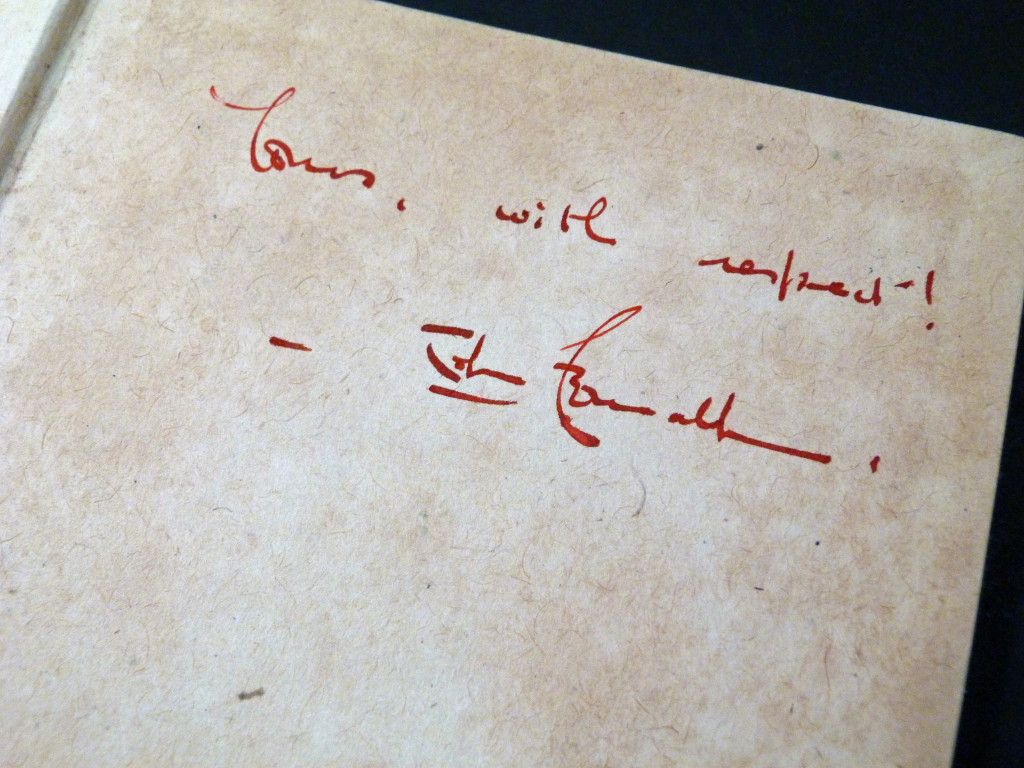 Yours, with respect!
– John